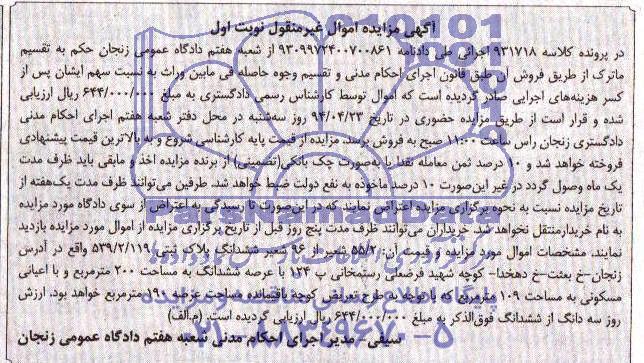 آگهی مزایده اموال غیرمنقول نوبت اول
در پرونده کلاسه ۹۳۱۷۱۸ اجرائی طی دادنامه ۹۳۰۹۹۷۲۴۰۰۷۰۰۸۶۱ از شعبه هفتم دادگاه عمومی زنجان حکم به تقسیم
ماترک از طریق فروش آن طبق قانون اجرای احکام مدنی و تقسیم وجوه حاصله فی مابین وراث به نسبت سهم ایشان پس از
کسر هزینه‌های اجرایی صادر گردیده است که اموال توسط کارشناس رسمی دادگستری به مبلغ ۶۴۴/۰۰۰/۰۰۰ ریال ارزیابی
شده و قرار است از طریق مزایده حضوری در تاریخ ۹۴/۰۴/۲۳ روز سه‌شنبه در محل دفتر شعبه هفتم اجرای احکام مدنی
دادگستری زنجان راس ساعت ۱۱:۰۰ صبح به فروش برسد. مزایده از قیمت پایه کارشناسی شروع و به بالاترین قیمت پیشنهادی
فروخته خواهد شد و ۱۰ درصد ثمن معامله نقدا یا به‌صورت چک بانکی(تضمینی) از برنده مزایده اخذ و مابقی باید ظرف مدت
یک ماه وصول گردد در غیر این‌صورت ۱۰ درصد ماخوذه به نفع دولت ضبط خواهد شد. طرفین می‌توانند ظرف مدت یک‌هفته از
تاریخ مزایده نسبت به نحوه برگزاری مزایده اعتراض نمایند که در این‌صورت تا رسیدگی به اعتراض از سوی دادگاه مورد مزایده
به نام خریدارمنتقل نخواهد شد. خریداران می‌توانند ظرف مدت پنج روز قبل از برگزاری مزایده از اموال مورد مزایده بازدید
نمایند. مشخصات اموال مورد مزایده و قیمت آن: ۵۵/۲ شعیر از ۹۶ شعیر ششدانگ پلاک ثبتی ۵۳۹/۲/۱۱۹ واقع در آدرس
زنجان-خ بعثت-خ دهخدا- کوچه شهید فرضعلی رستمخانی پ ۱۲۴ با عرصه ششدانگ به مساحت ۲۰۰ مترمربع و با اعیانی
مسکونی به مساحت ۱۰۹ مترمربع که با توجه به طرح تعریض کوچه باقیمانده مساحت عرصه ۱۹۰ مترمربع خواهد بود. ارزش
روز سه دانگ از ششدانگ فوق‌الذکر به مبلغ ۶۴۴/۰۰۰/۰۰۰ ریال ارزیابی گردیده است. (م.الف)
سیفی- مدیر اجرای احکام مدنی شعبه هفتم دادگاه عمومی زنجان
ParsNamadData
۰۲۱-۸۸۳۴۹۶۷۰-۵